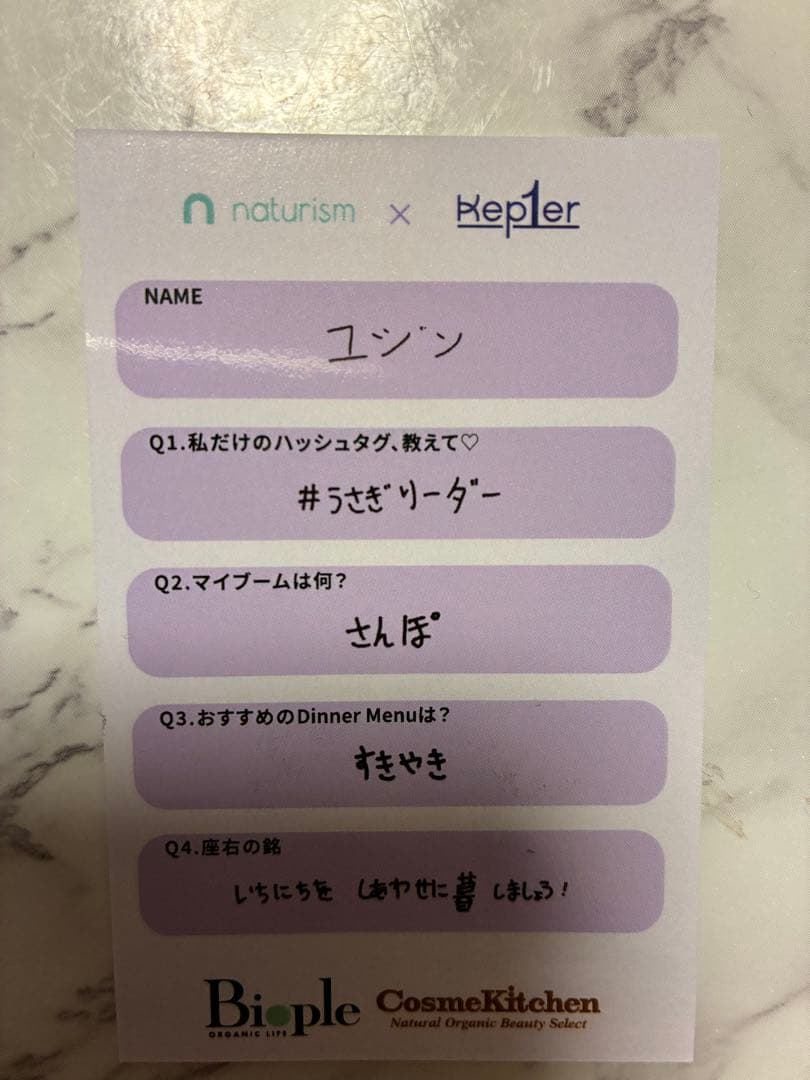 naturism × Kep1er
NAME
ユジン
Q1.私だけのハッシュタグ、教えて♡
#うさぎリーダー
Q2.マイブームは何？
さんぽ
Q3.おすすめのDinner Menuは？
すきやき
Q4.座右の銘
いちにちを しあわせに暮しましょう！
Biople CosmeKitchen
ORGANIC LIFE Natural Organic Beauty Select